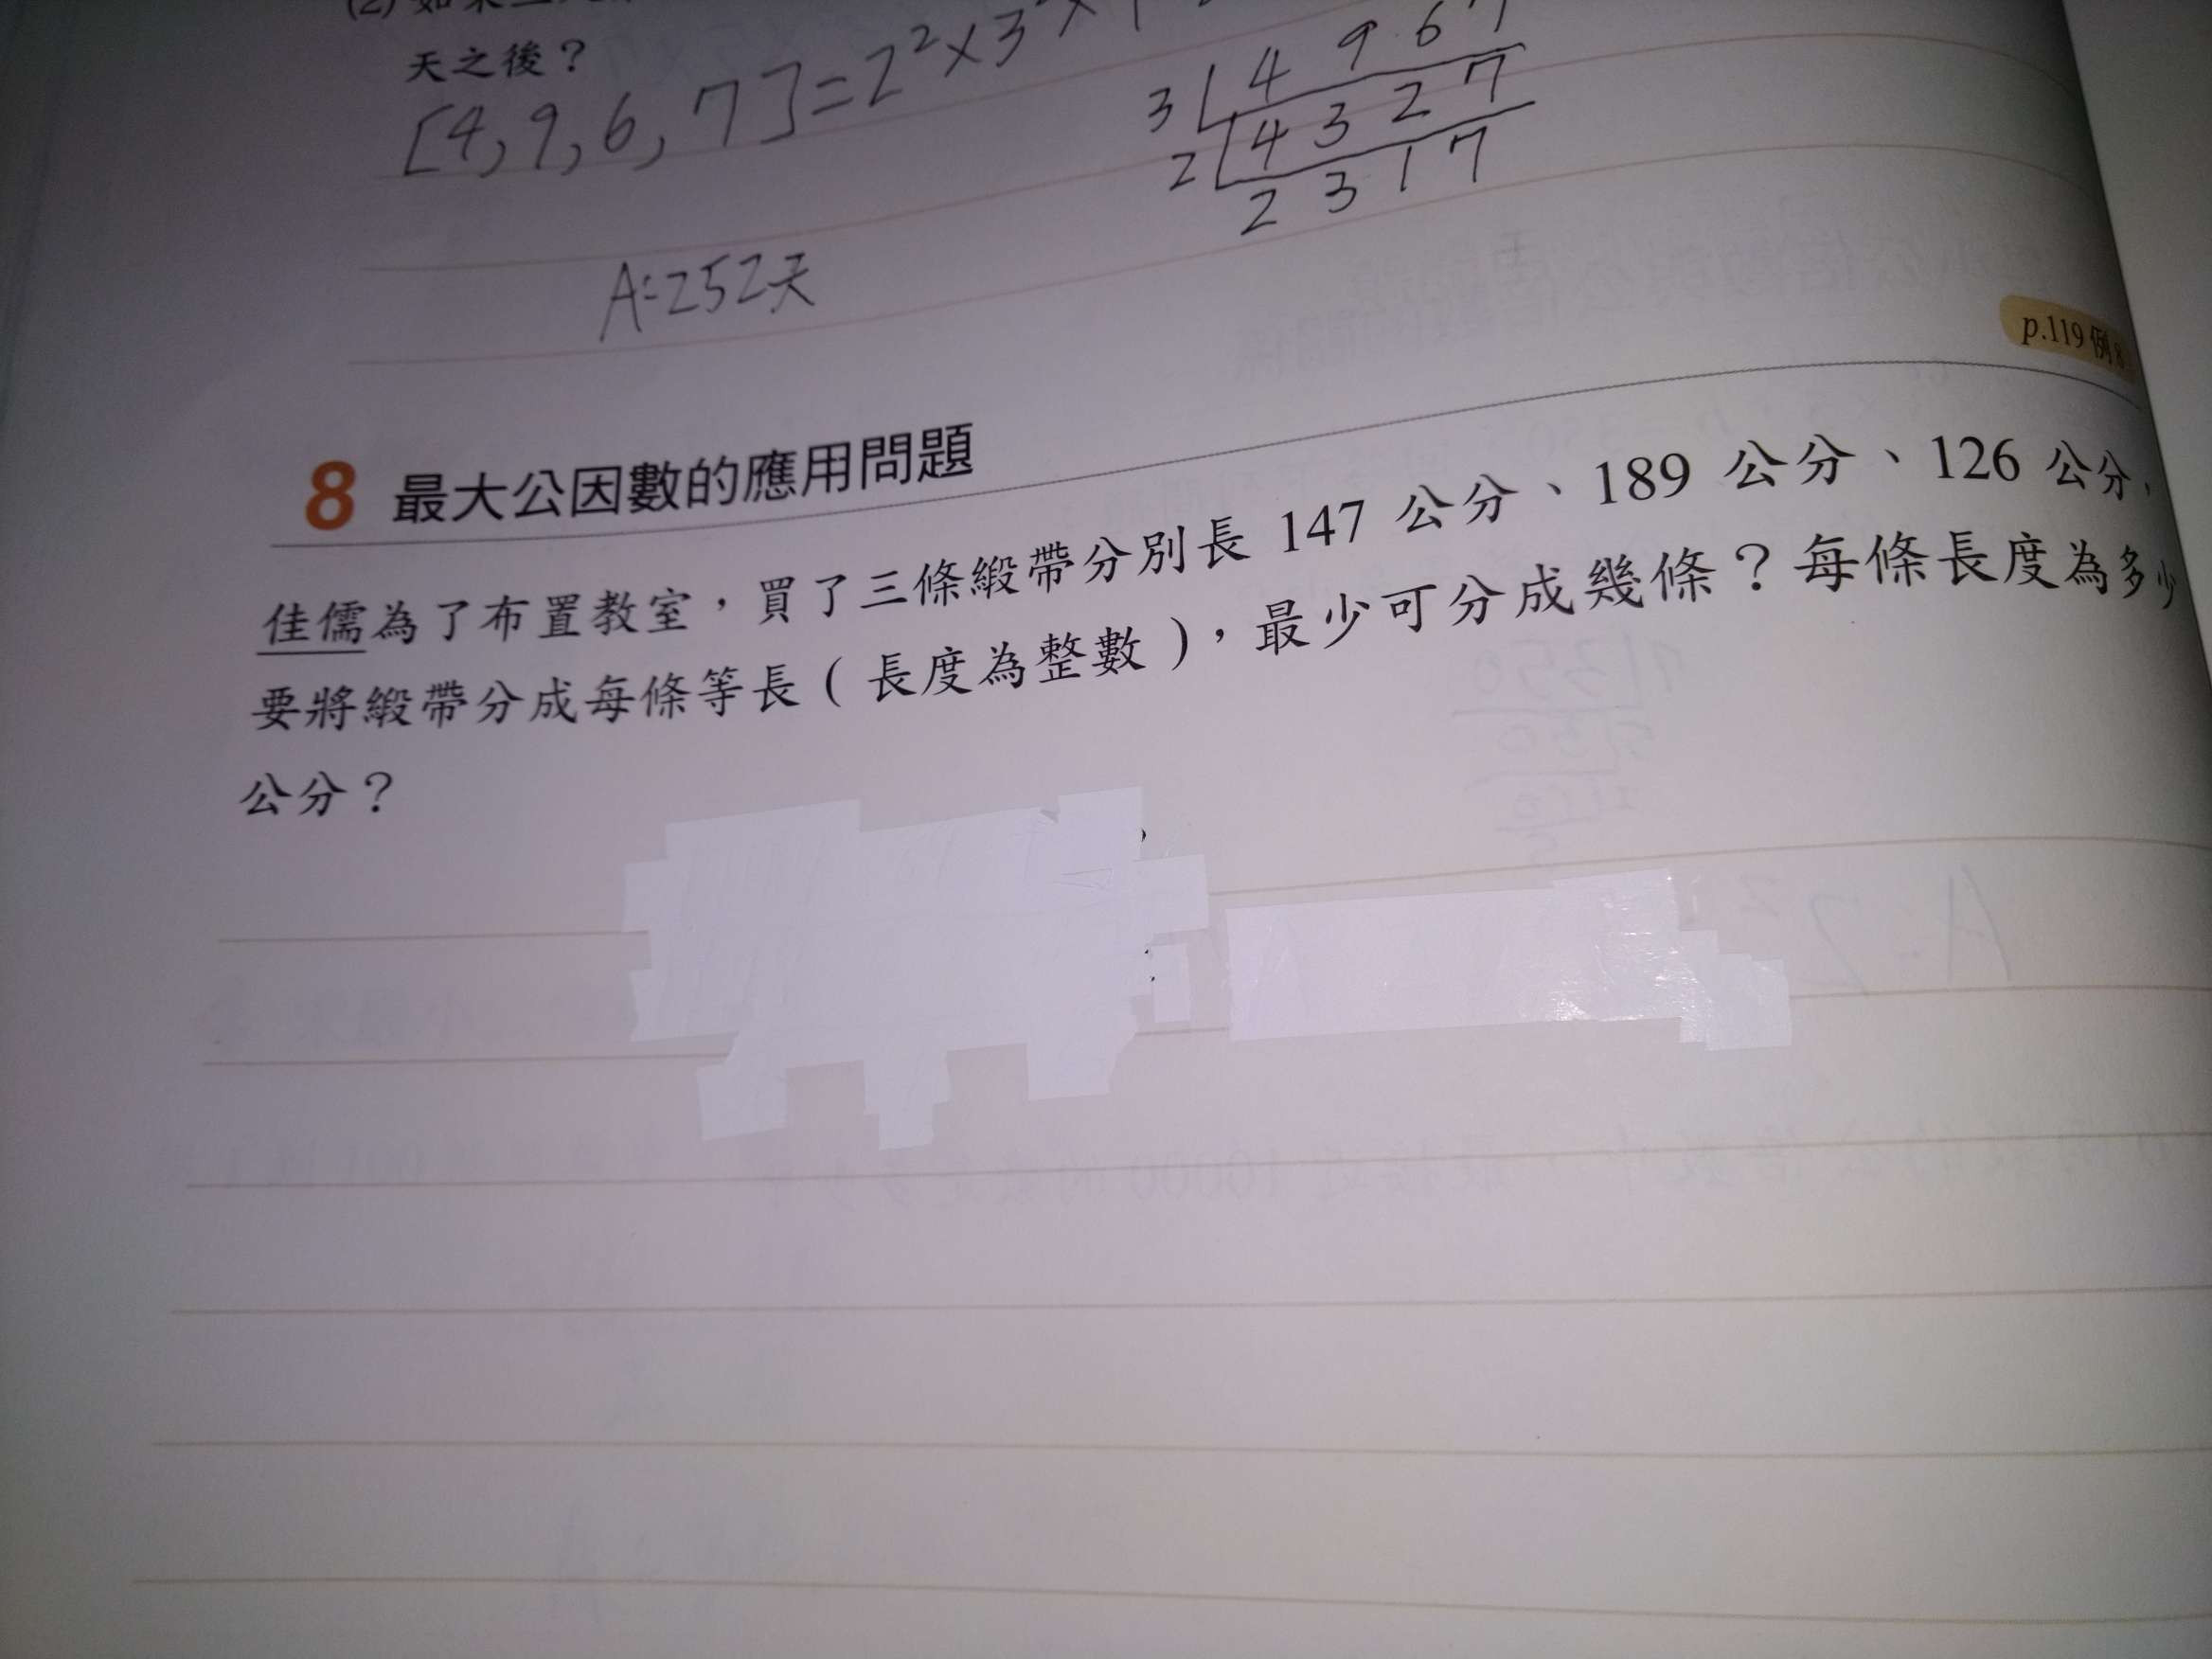 (2)
天之後？
[4,9,6,7]=2²×3²×
4 9 6 7
3 4 3 2 7
2 2 3 1 7
A:252天
p.119 例 8
8 最大公因數的應用問題
佳儒為了布置教室，買了三條緞帶分別長 147 公分、189 公分、126 公分，
要將緞帶分成每條等長（長度為整數），最少可分成幾條？每條長度為多少
公分？